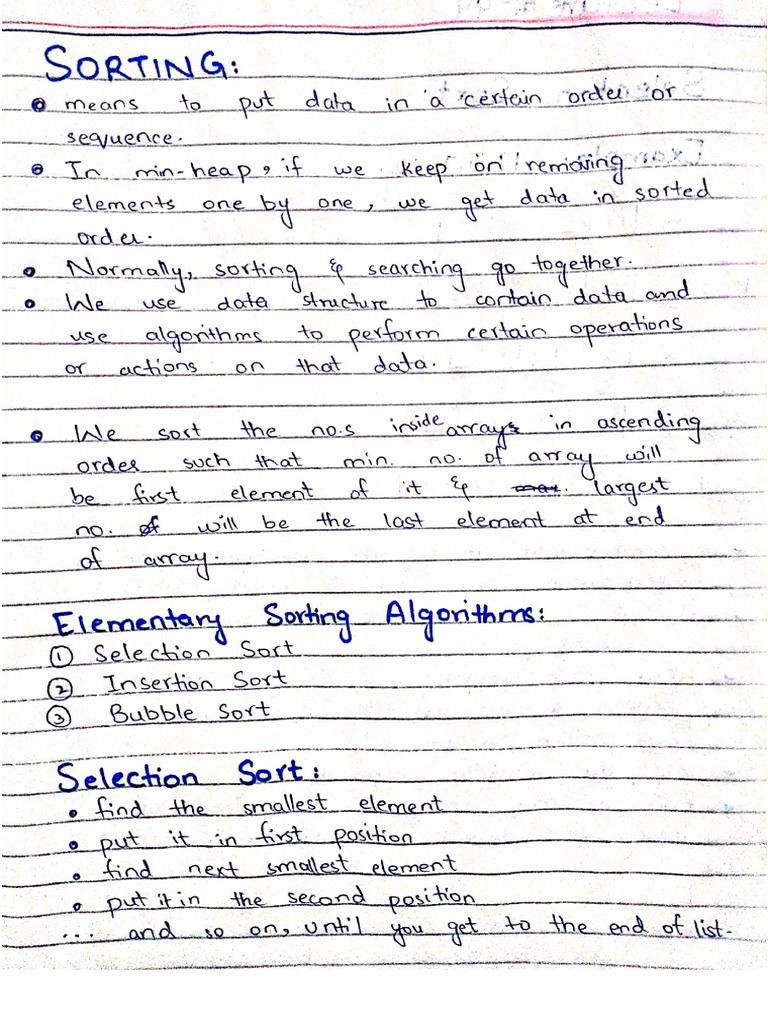 SORTING:
• means to put data in a certain order or
sequence.
• In min-heap, if we keep on removing
elements one by one, we get data in sorted
order.
• Normally, sorting & searching go together.
• We use data structure to contain data and
use algorithms to perform certain operations
or actions on that data.
• We sort the no.s inside arrays in ascending
order such that min. no. of array will
be first element of it & largest
no. of will be the last element at end
of array.
Elementary Sorting Algorithms:
① Selection Sort
② Insertion Sort
③ Bubble Sort
Selection Sort:
• find the smallest element
• put it in first position
• find next smallest element
• put it in the second position
... and so on, until you get to the end of list.